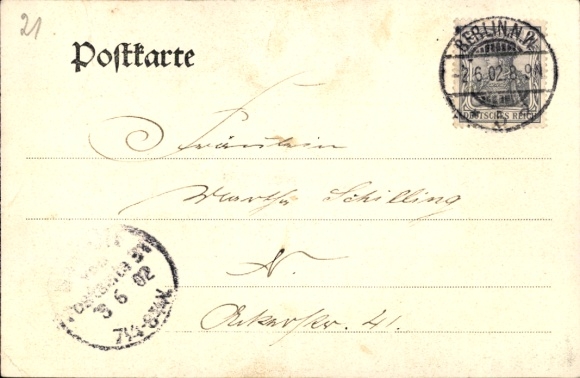 21
Postkarte
BERLIN.N.W.
2.6.02.8-9N
DEUTSCHES REICH
Fräulein
Martha Schilling
N.
Ackerstr. 41.
3 6 02
7¼-8½V.